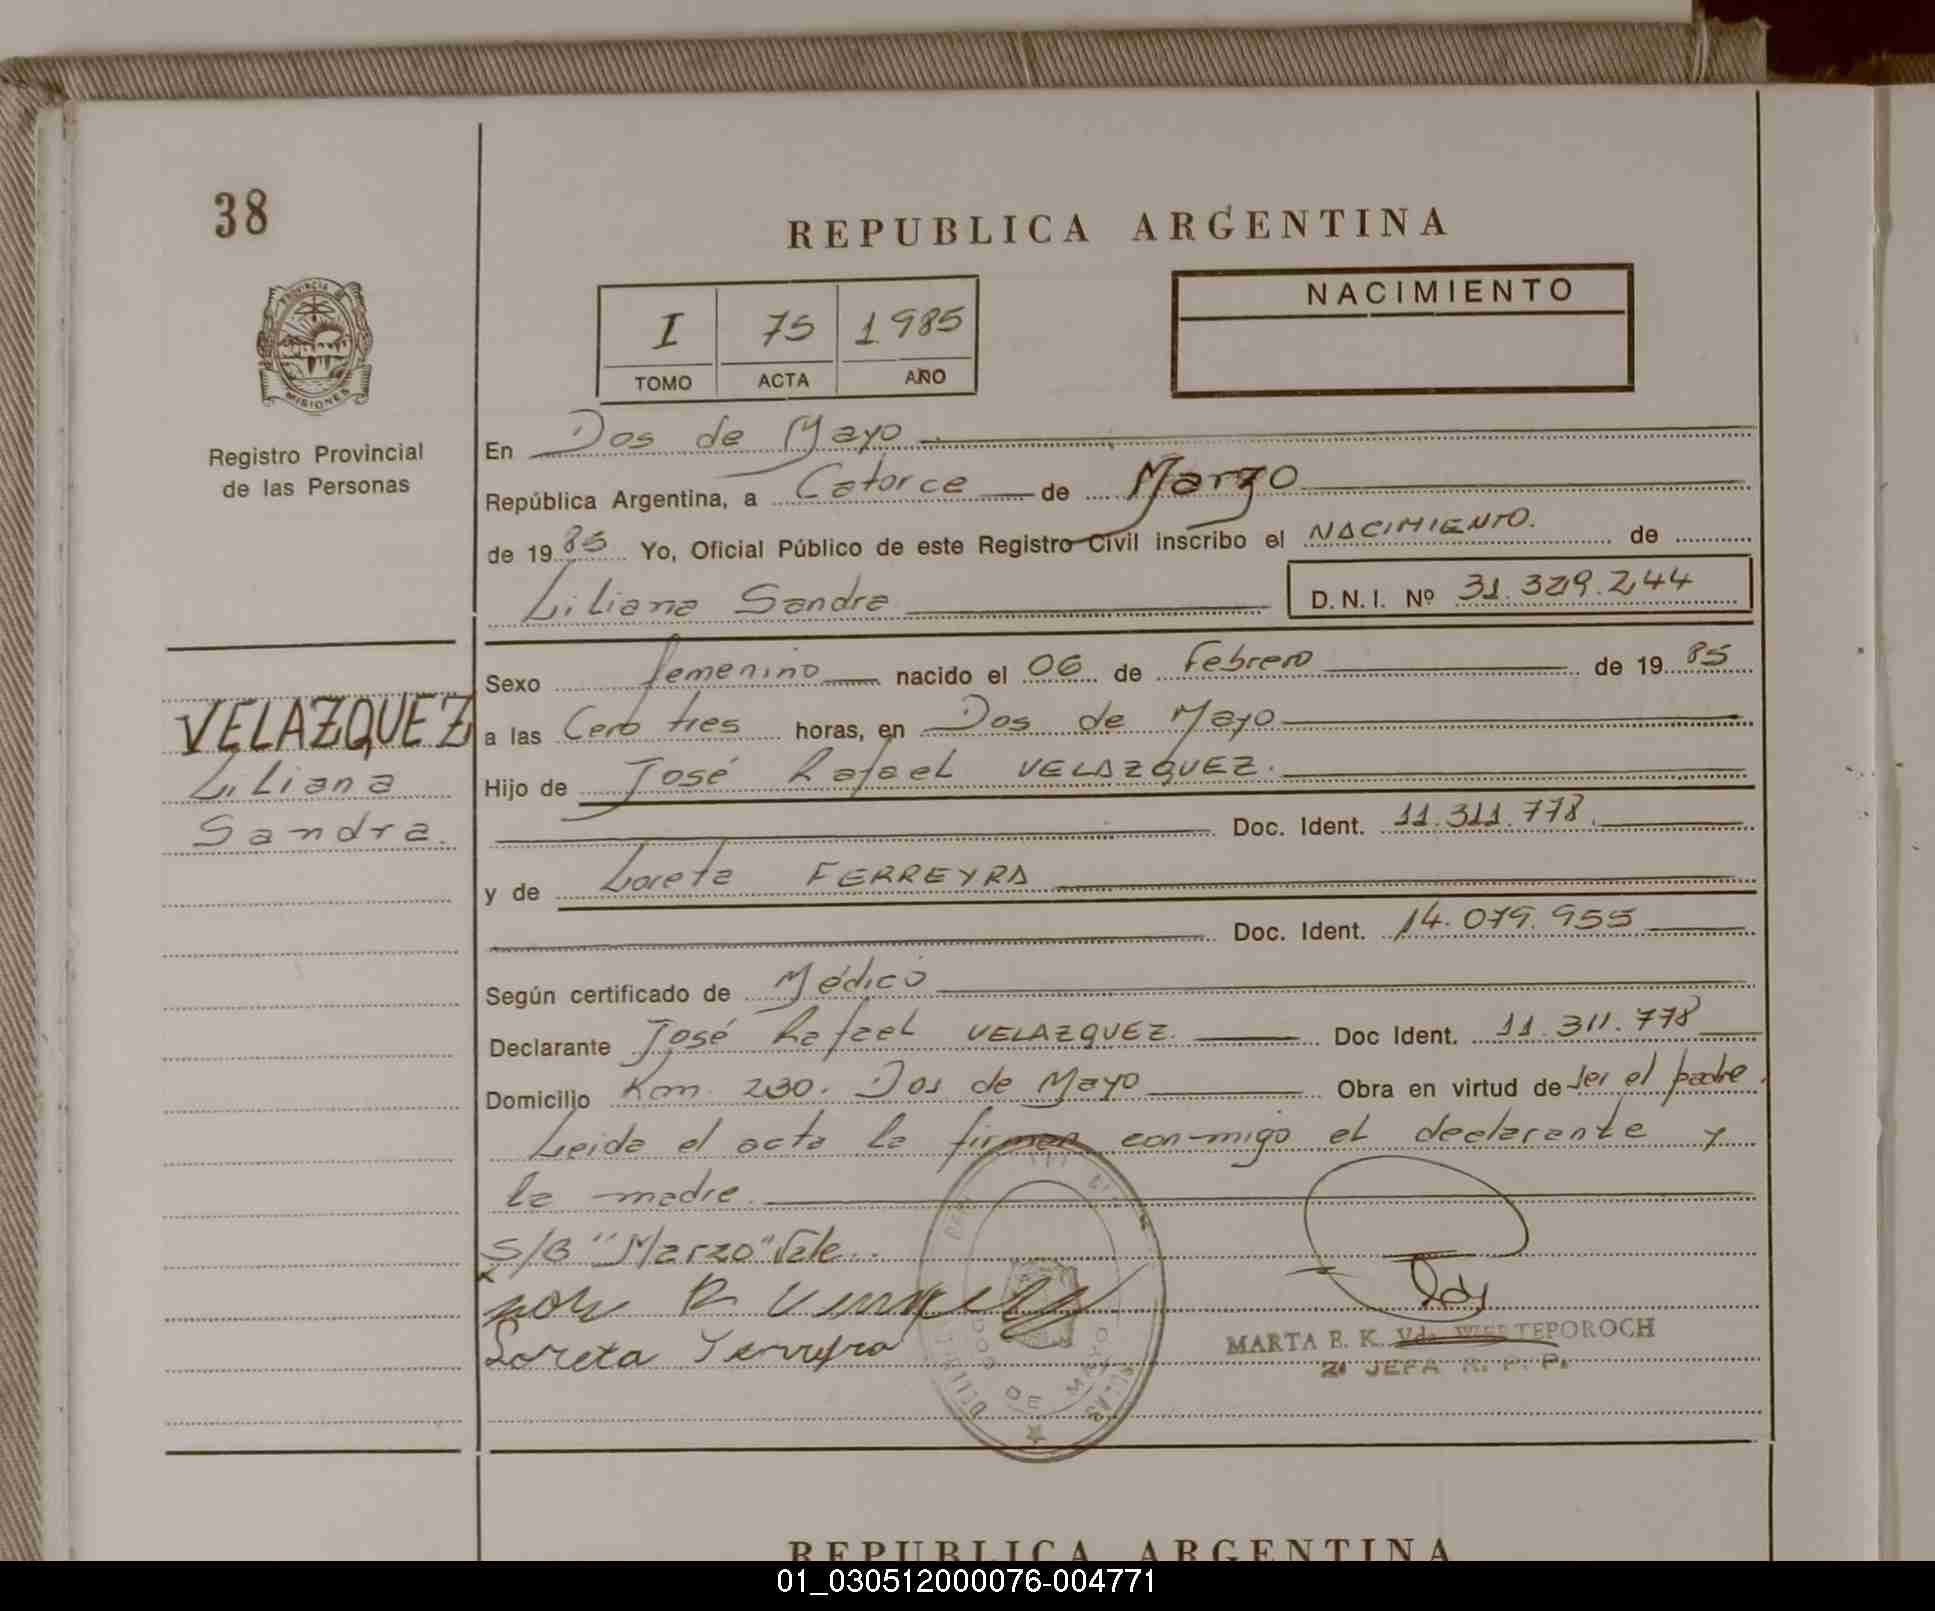 38
REPUBLICA ARGENTINA
NACIMIENTO
I 75 1985
TOMO ACTA AÑO
PROVINCIA DE
MISIONES
Registro Provincial
de las Personas
En Dos de Mayo
República Argentina, a Catorce de Marzo
de 1985 Yo, Oficial Público de este Registro Civil inscribo el NACIMIENTO. de
Liliana Sandra D.N.I. Nº 31.329.244
Sexo femenino nacido el 06 de Febrero de 1985
VELAZQUEZ
Liliana
Sandra.
a las Cero tres horas, en Dos de Mayo
Hijo de José Rafael VELAZQUEZ.
Doc. Ident. 11.311.778.
y de Loreta FERREYRA
Doc. Ident. 14.079.955
Según certificado de Médico
Declarante José Rafael VELAZQUEZ. Doc Ident. 11.311.778
Domicilio Km. 230. Dos de Mayo Obra en virtud de ser el padre.
Leida el acta la firman con-migo el declarante y
la madre.
S/B "Marzo" Vale..
Loreta Ferreyra
MARTA E. K. Vda. TEPOROCH
JEFA R. P. P.
DOS DE MAYO
REPUBLICA ARGENTINA
01_030512000076-004771